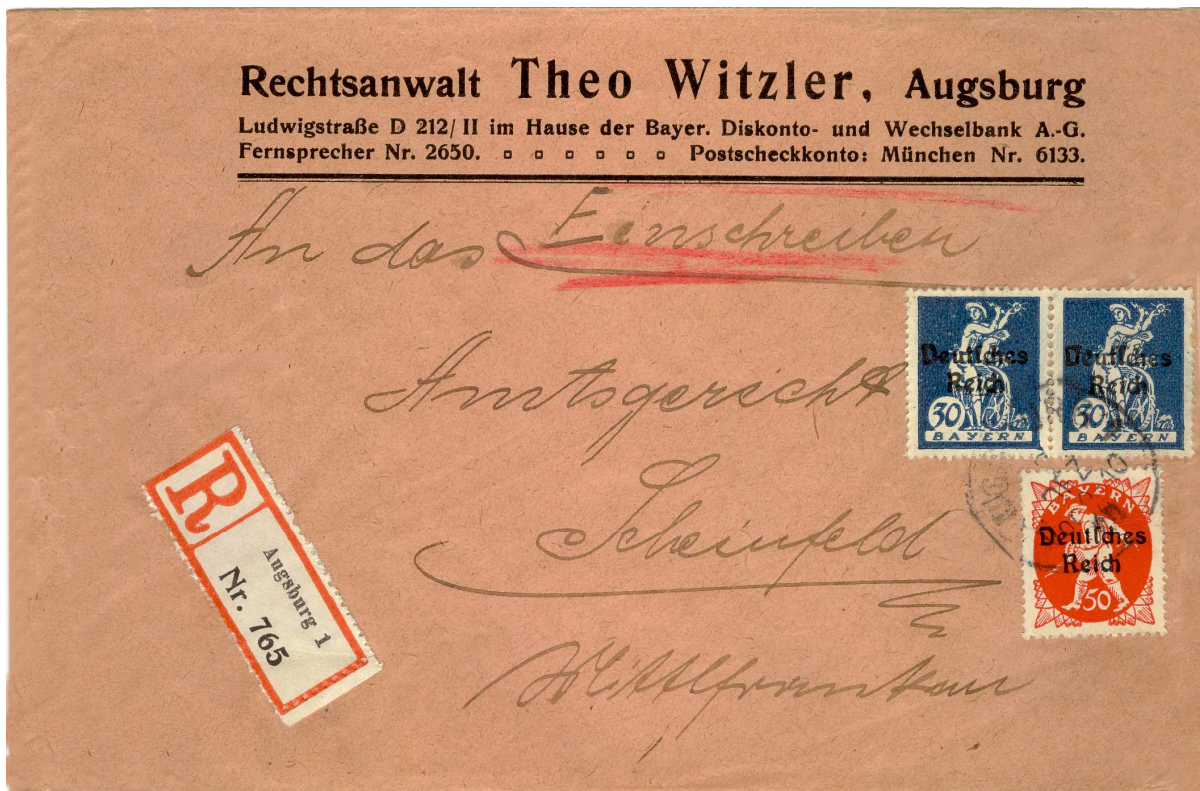 Rechtsanwalt Theo Witzler, Augsburg
Ludwigstraße D 212/II im Hause der Bayer. Diskonto- und Wechselbank A.-G.
Fernsprecher Nr. 2650. Postscheckkonto: München Nr. 6133.
Einschreiben
An das
Amtsgericht
Scheinfeld
Mittlfranken
R
Augsburg 1
Nr. 765
Deutsches
Reich
30
BAYERN
Deutsches
Reich
30
BAYERN
BAYERN
Deutsches
Reich
50